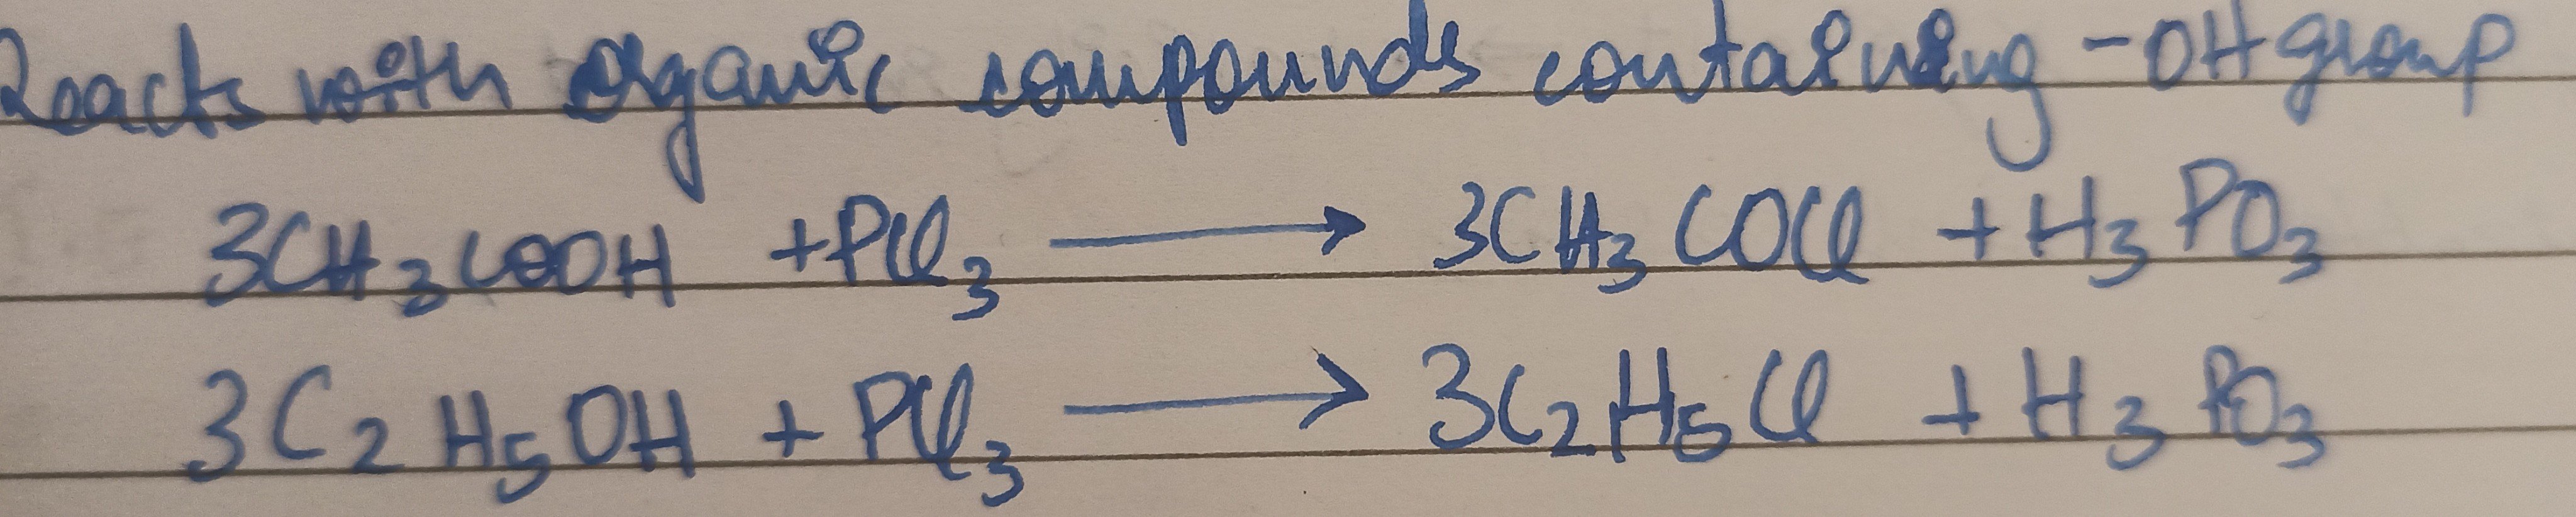 Reacts with organic compounds containing -OH group
3CH₃COOH + PCl₃ ⟶ 3CH₃COCl + H₃PO₃
3C₂H₅OH + PCl₃ ⟶ 3C₂H₅Cl + H₃PO₃